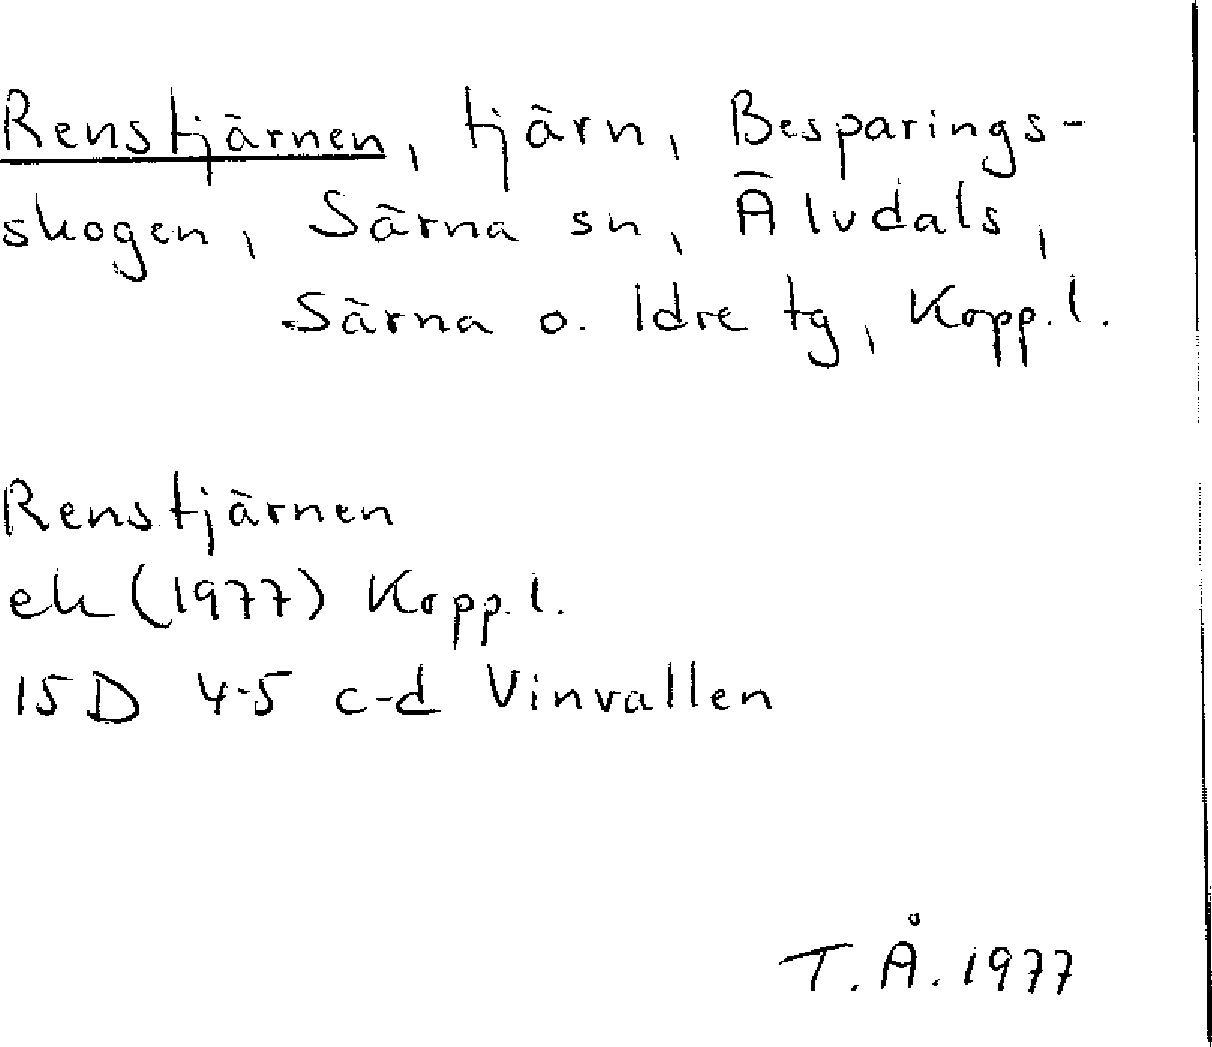 Renstjärnen, tjärn, Besparings-
skogen, Särna sn, Älvdals,
Särna o. Idre tg, Kopp. l.
Renstjärnen
ek (1977) Kopp. l.
15 D 4-5 c-d Vinvallen
T. Å. 1977